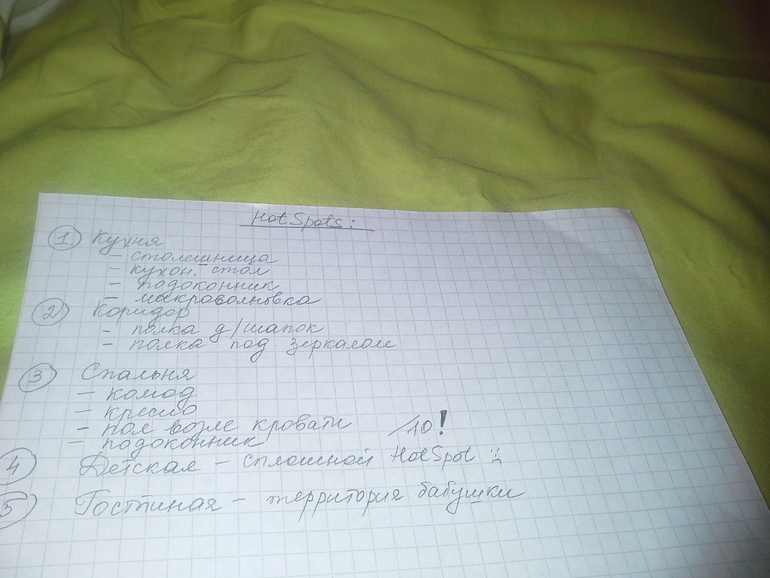 HotSpots:
1 Кухня
- столешница
- кухон. стол
- подоконник
- микроволновка
2 Коридор
- полка д/шапок
- полка под зеркалом
3 Спальня
- комод
- кресло
- пол возле кровати
- подоконник
10!
4 Детская - сплошной HotSpot :(
5 Гостиная - территория бабушки